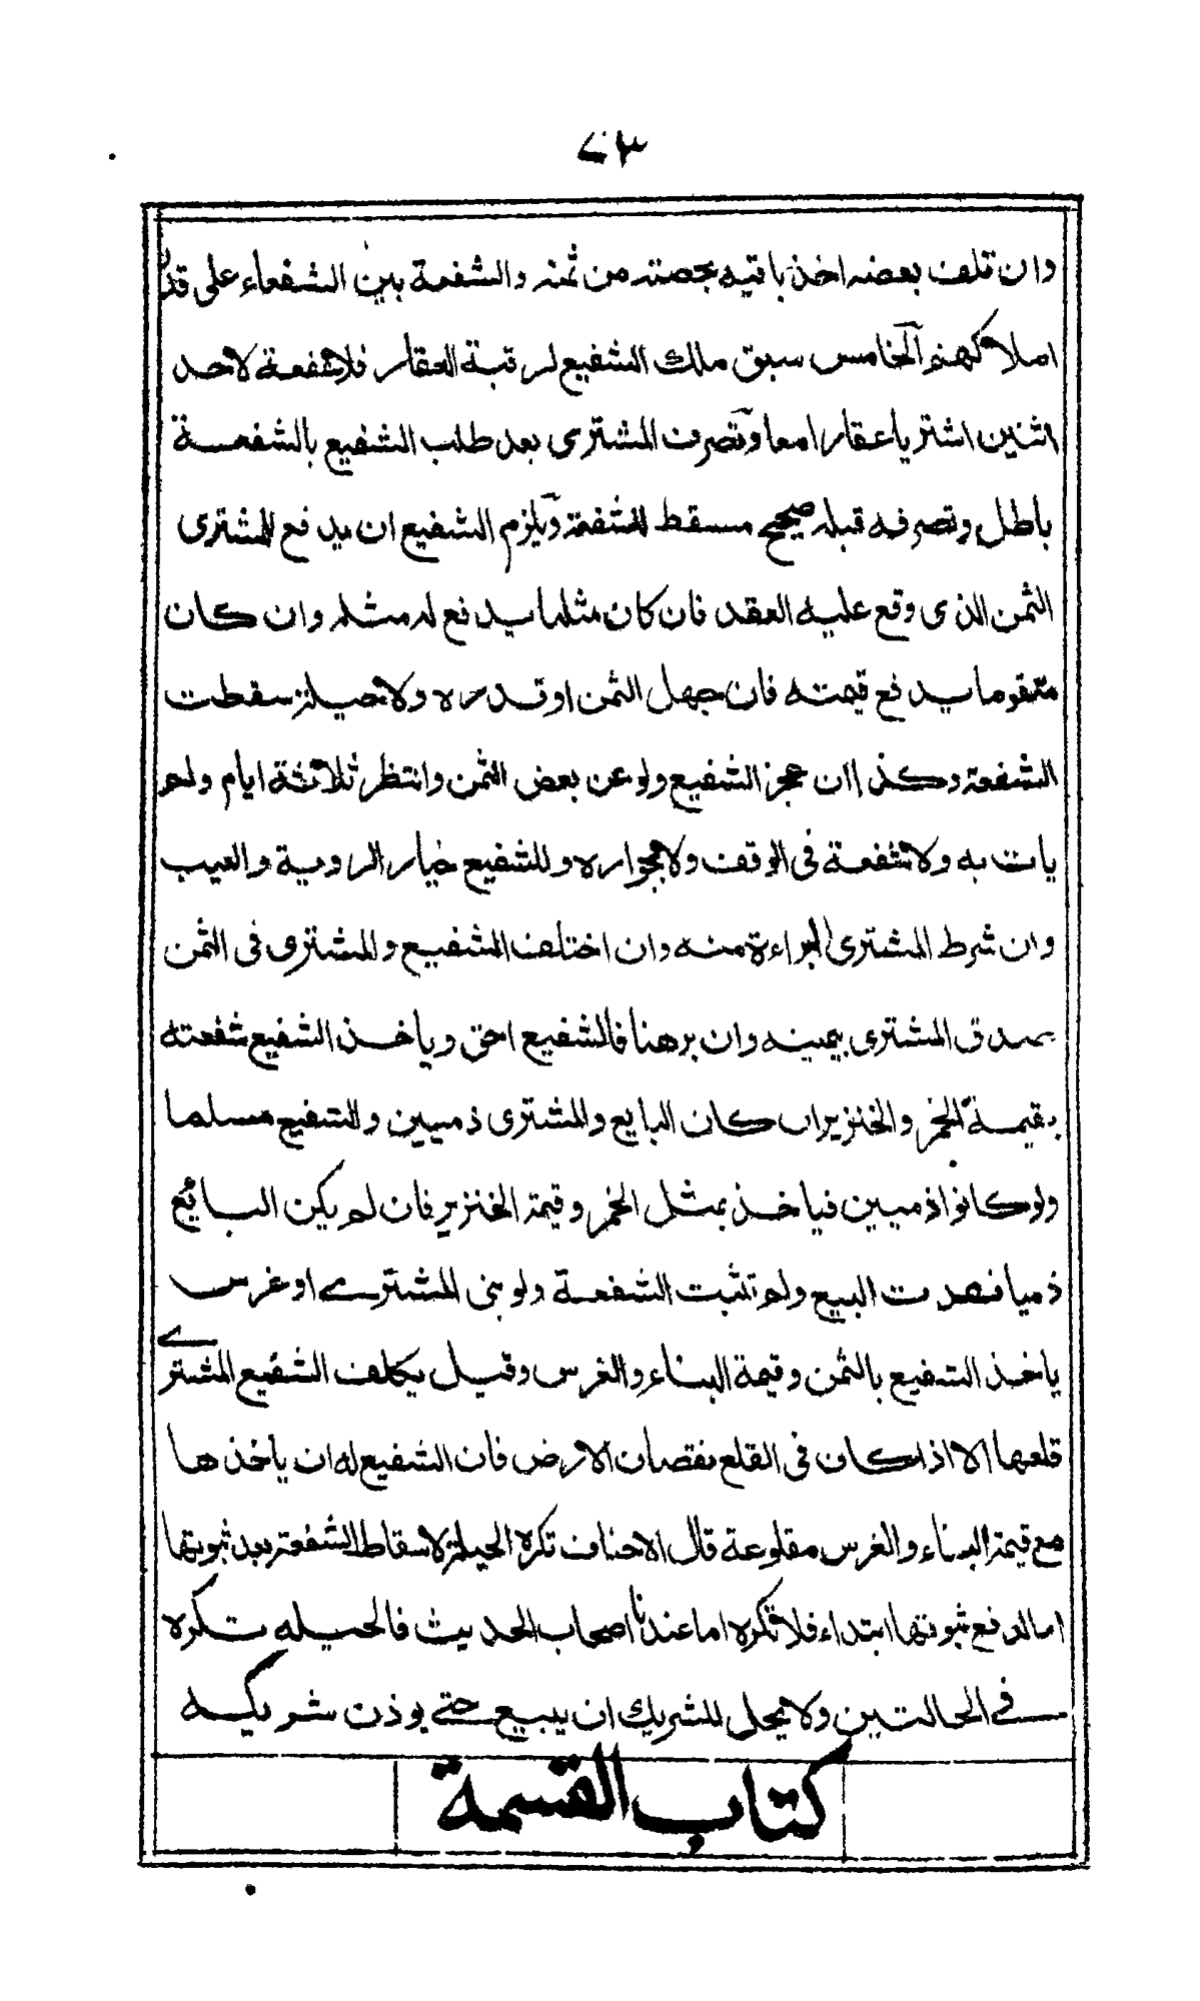 ٧٣
وان تلف بعضه اخذ باقيه بحصته من ثمنه والشفعة بين الشفعاء على قدر
املاكهم الخامس سبق ملك الشفيع لرقبة العقار فلا شفعة لاحد
اثنين اشتريا عقارا معا وتصرف المشترى بعد طلب الشفيع بالشفعة
باطل وتصرفه قبله صحيح مسقط للشفعة ويلزم الشفيع ان يدفع للمشترى
الثمن الذى وقع عليه العقد فان كان مثليا يدفع له مثله وان كان
متقوما يدفع قيمته فان جهل الثمن او قدره ولا حيلة سقطت
الشفعة وكذا ان عجز الشفيع ولو عن بعض الثمن وانتظر ثلاثة ايام ولم
يات به ولا شفعة فى الوقف ولا بجواره وللشفيع خيار الروية والعيب
وان شرط المشترى البراءة منه وان اختلف الشفيع والمشترى فى الثمن
صدق المشترى بيمينه وان برهنا فالشفيع احق وياخذ الشفيع شفعته
بقيمة الخمر والخنزير ان كان البايع والمشترى ذميين والشفيع مسلما
ولو كانوا ذميين فياخذ بمثل الخمر وقيمة الخنزير فان لم يكن البائع
ذميا فسدت البيع ولم تثبت الشفعة ولو بنى المشترے او غرس
ياخذ الشفيع بالثمن وقيمة البناء والغرس وقيل يكلف الشفيع المشترے
قلعها الا اذا كان فى القلع نقصان الارض فان الشفيع له ان ياخذها
مع قيمة البناء والغرس مقلوعة قال الاحناف تكره الحيلة لاسقاط الشفعة بعد ثبوتها
اما لدفع ثبوتها ابتداء فلا تكره اما عندنا اصحاب الحديث فالحيله تكره
فے الحالتين ولا يحل للشريك ان يبيع حتے يوذن شريكه
كتاب القسمة